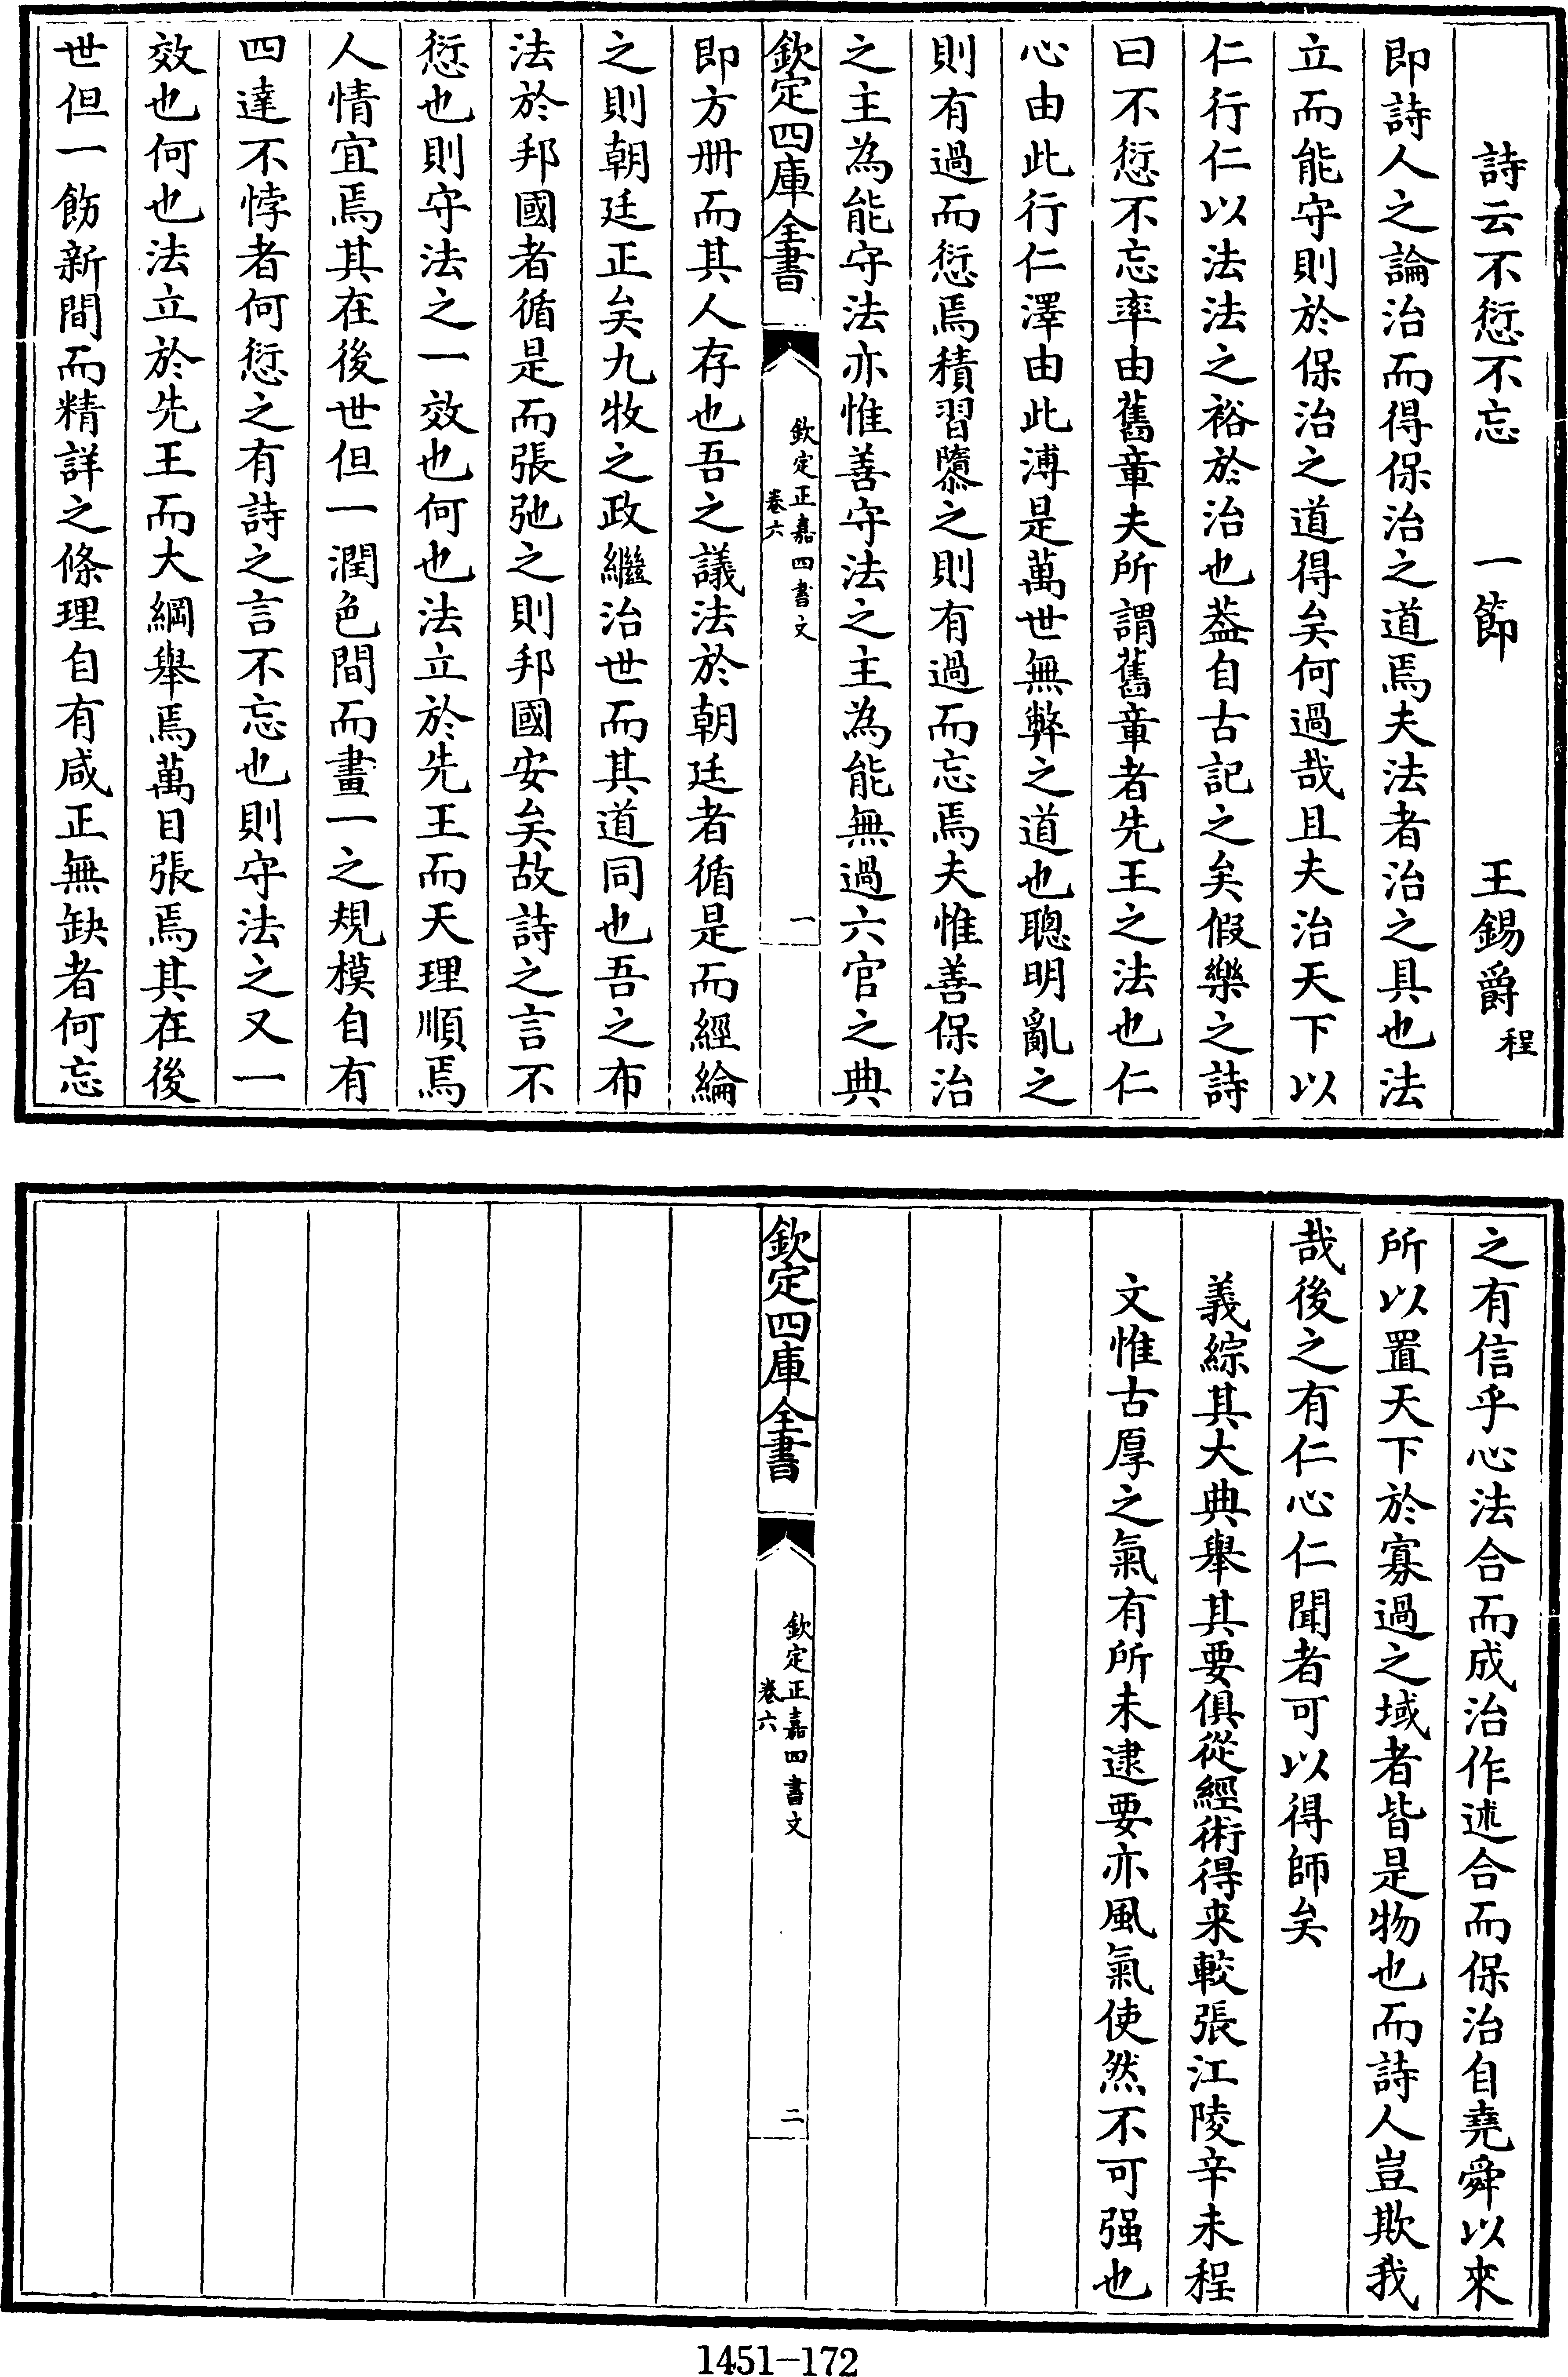 詩云不愆不忘　一節　王錫爵程
即詩人之論治而得保治之道焉夫法者治之具也法
立而能守則於保治之道得矣何過哉且夫治天下以
仁行仁以法法之裕於治也葢自古記之矣假樂之詩
曰不愆不忘率由舊章夫所謂舊章者先王之法也仁
心由此行仁澤由此溥是萬世無弊之道也聰明亂之
則有過而愆焉積習隳之則有過而忘焉夫惟善保治
之主為能守法亦惟善守法之主為能無過六官之典
欽定四庫全書
欽定正嘉四書文
卷六
一
即方册而其人存也吾之議法於朝廷者循是而經綸
之則朝廷正矣九牧之政繼治世而其道同也吾之布
法於邦國者循是而張弛之則邦國安矣故詩之言不
愆也則守法之一效也何也法立於先王而天理順焉
人情宜焉其在後世但一潤色間而畫一之規模自有
四達不悖者何愆之有詩之言不忘也則守法之又一
效也何也法立於先王而大綱舉焉萬目張焉其在後
世但一飭新間而精詳之條理自有咸正無缺者何忘
之有信乎心法合而成治作述合而保治自堯舜以來
所以置天下於寡過之域者皆是物也而詩人豈欺我
哉後之有仁心仁聞者可以得師矣
義綜其大典舉其要俱從經術得来較張江陵辛未程
文惟古厚之氣有所未逮要亦風氣使然不可强也
欽定四庫全書
欽定正嘉四書文
卷六
二
1451-172